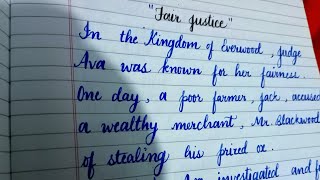 "Fair Justice"
In the Kingdom of Everwood, judge
Ava was known for her fairness.
One day, a poor farmer, Jack, accused
a wealthy merchant, Mr. Blackwood
of stealing his prized ox.
Ava investigated and